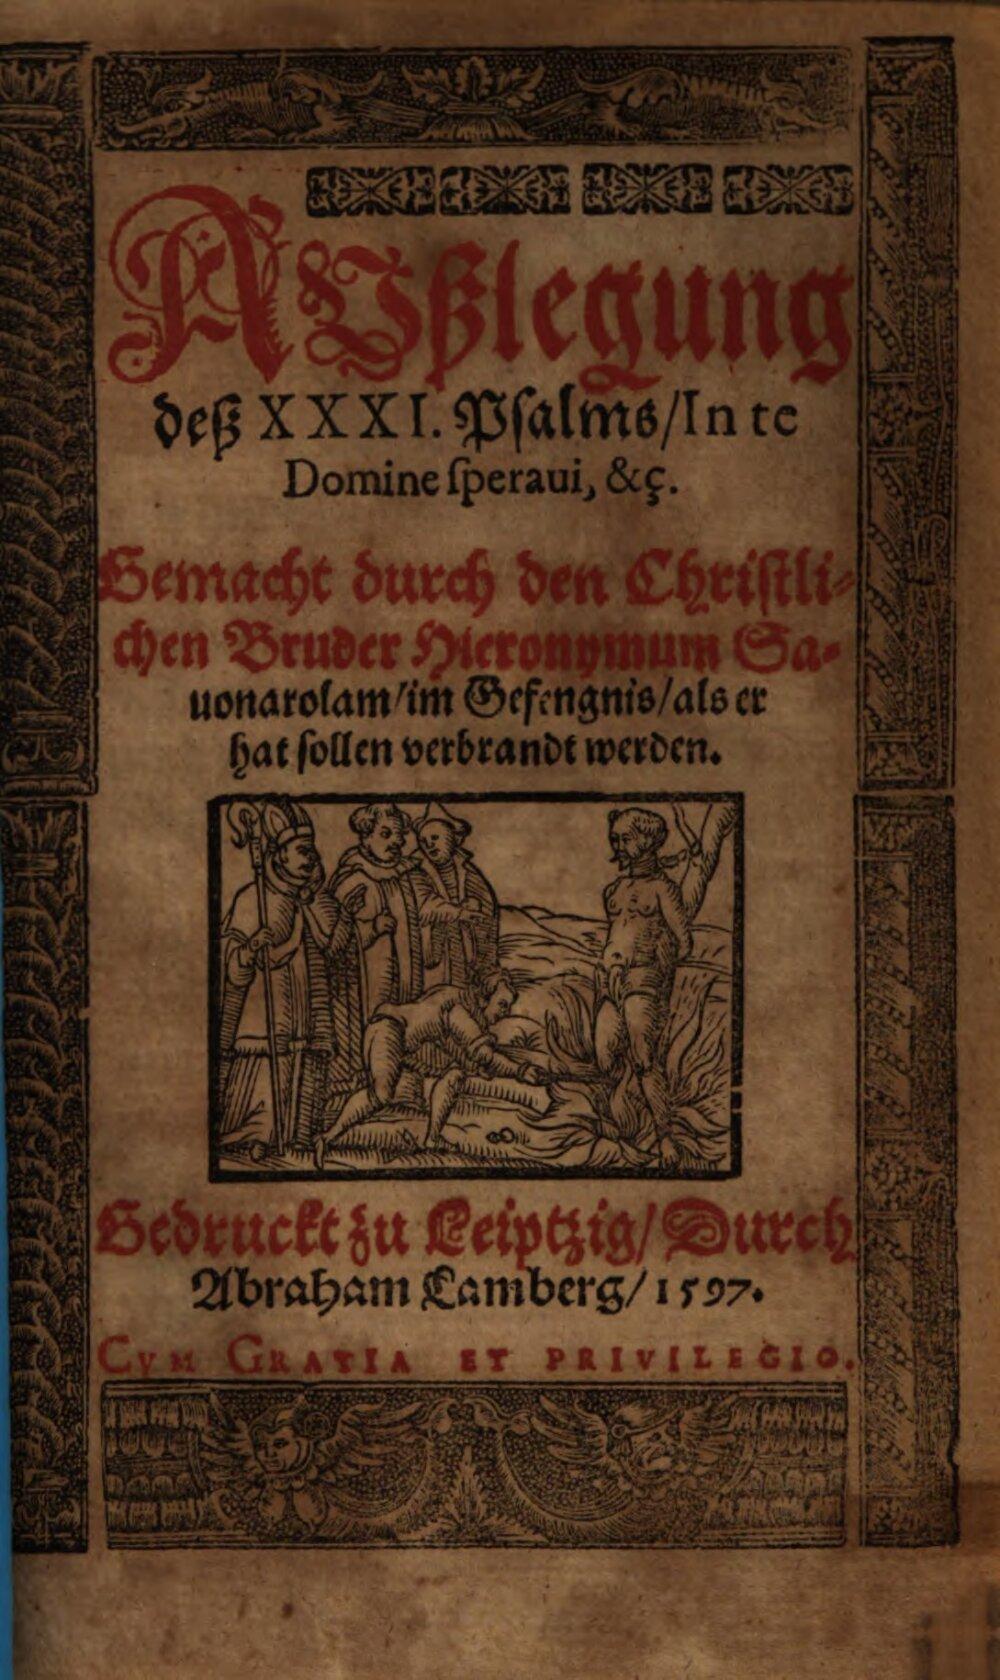 AVßlegung
deß XXXI. Psalms/In te
Domine ſperaui, &ç.
Gemacht durch den Chriſtli-
chen Bruder Hieronymum Sa-
uonarolam/im Gefengnis/als er
hat ſollen verbrandt werden.
Gedruckt zu Leiptzig/Durch
Abraham Lamberg/1597.
CVM GRATIA ET PRIVILEGIO.